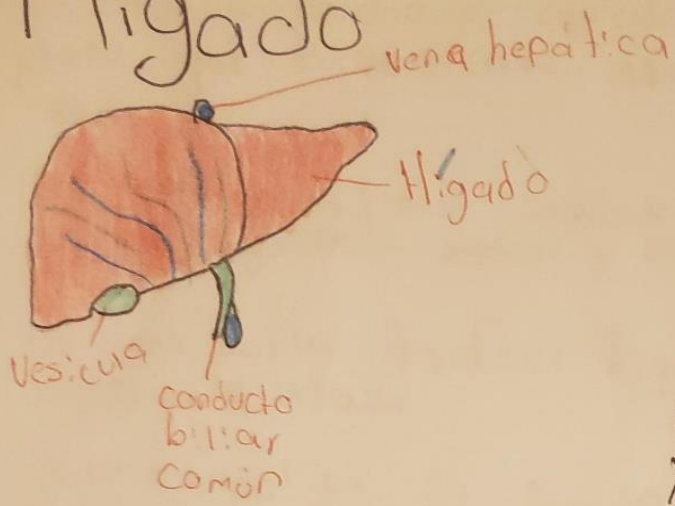 Hígado
vena hepática
Hígado
vesicula
conducto
biliar
común